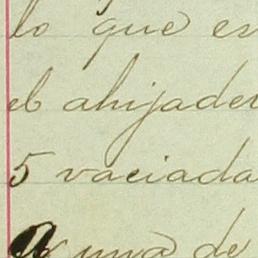 lo que es
el ahijader
5 vaciada
una de